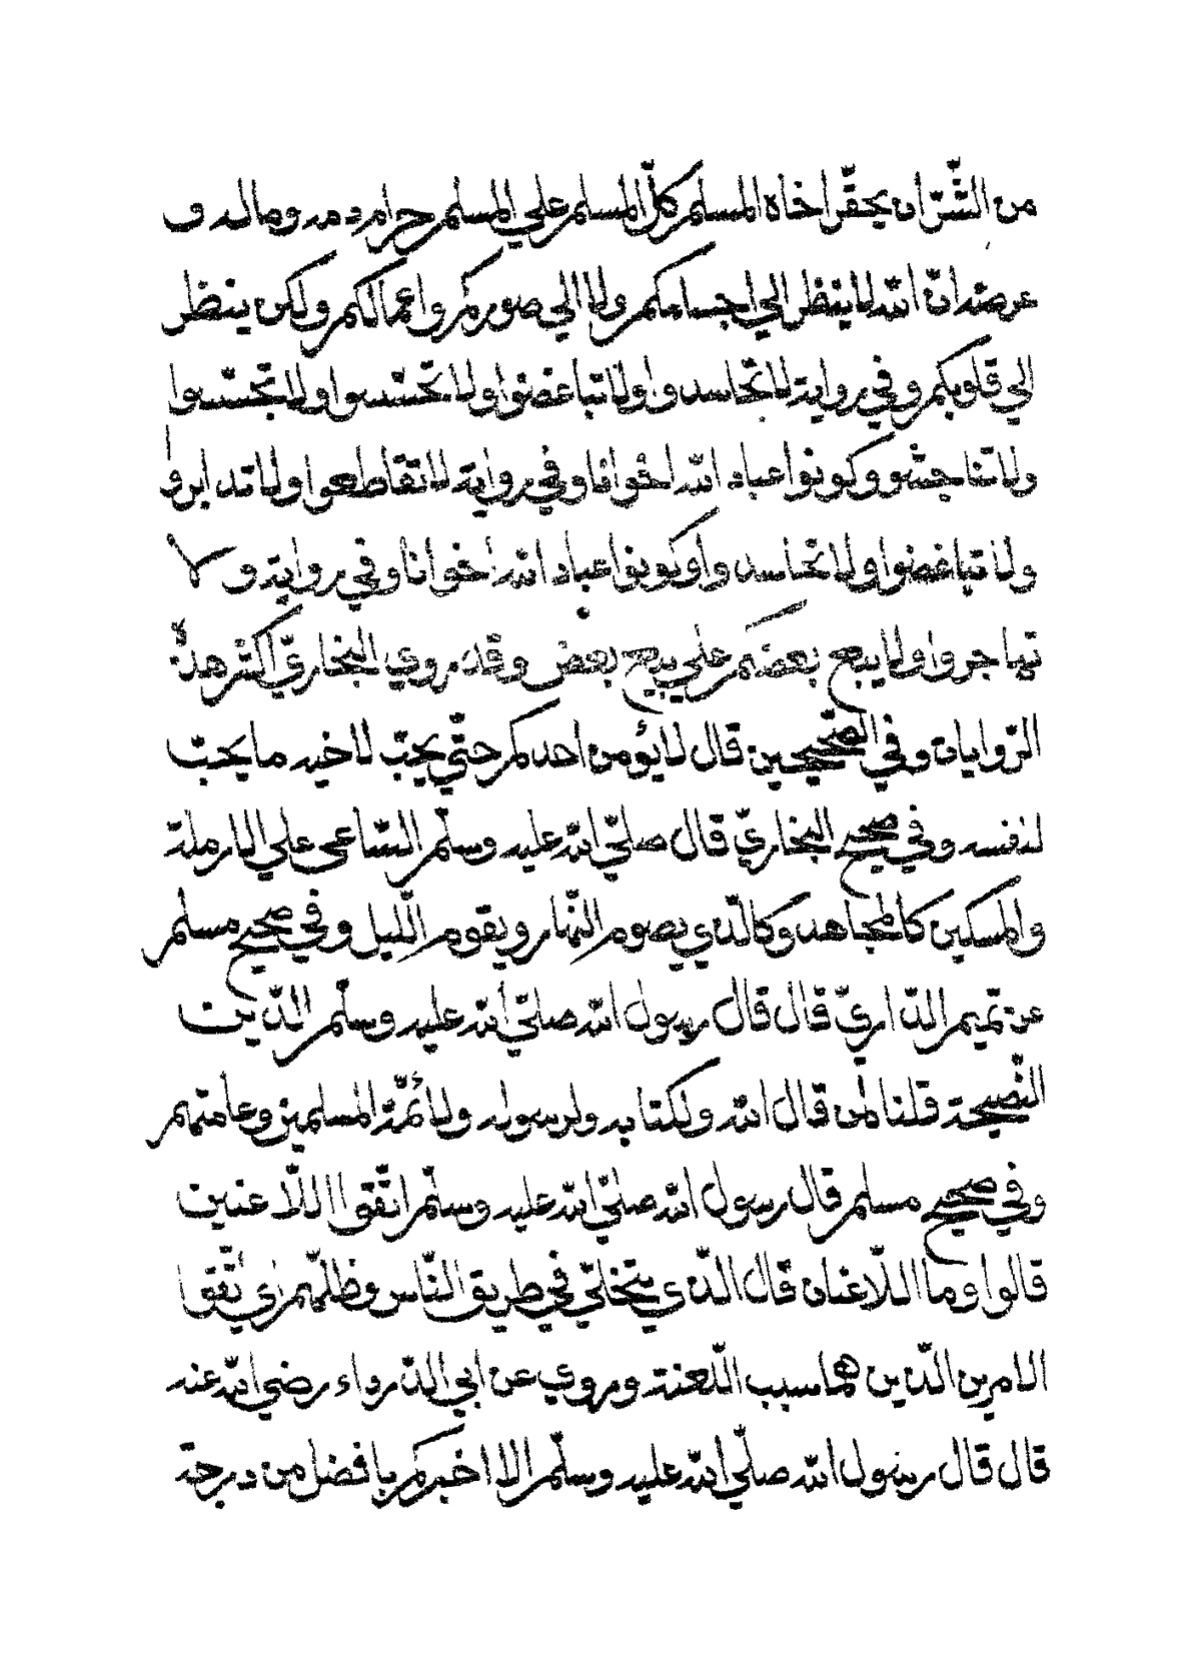 من الشّرّ ان يحقّر اخاه المسلم كلّ المسلم علي المسلم حرام دمه وماله و
عرضه انّ الله لا ينظر الي اجسامكم ولا الي صوركم واعمالكم ولكن ينظر
الي قلوبكم وفي رواية لا تحاسدوا ولا تباغضوا ولا تحسّسوا ولا تجسّسوا
ولا تناجشوو وكونوا عباد الله اخوانا وفي رواية لا تقاطعوا ولا تدابروا
ولا تباغضوا ولا تحاسدوا وكونوا عباد الله اخوانا وفي رواية و لا
تهاجروا ولا يبع بعضكم علي بيع بعض وقد روي البخاريّ اكثر هذه
الرّوايات وفي الصّحيحين قال لا يؤمن احدكم حتّي يحبّ لاخيه ما يحبّ
لنفسه وفي صحيح البخاريّ قال صلّي الله عليه وسلّم السّاعي علي الارملة
والمسكين كالمجاهد وكالّذي يصوم النّهار ويقوم اللّيل وفي صحيح مسلم
عن تميم الدّاريّ قال قال رسول الله صلّي الله عليه وسلّم الدّين
النّصيحة قلنا لمن قال لله ولكتابه ولرسوله ولائمّة المسلمين وعامتهم
وفي صحيح مسلم قال رسول الله صلّي الله عليه وسلّم اتّقوا اللّاعنين
قالوا وما اللّاعنان قال الّذي يتخلّي في طريق النّاس وظلّهم اي اتّقوا
الامرين الّذين هما سبب اللّعنة وروي عن ابي الدّرداء رضي الله عنه
قال قال رسول الله صلّي الله عليه وسلّم الا اخبركم بافضل من درجة